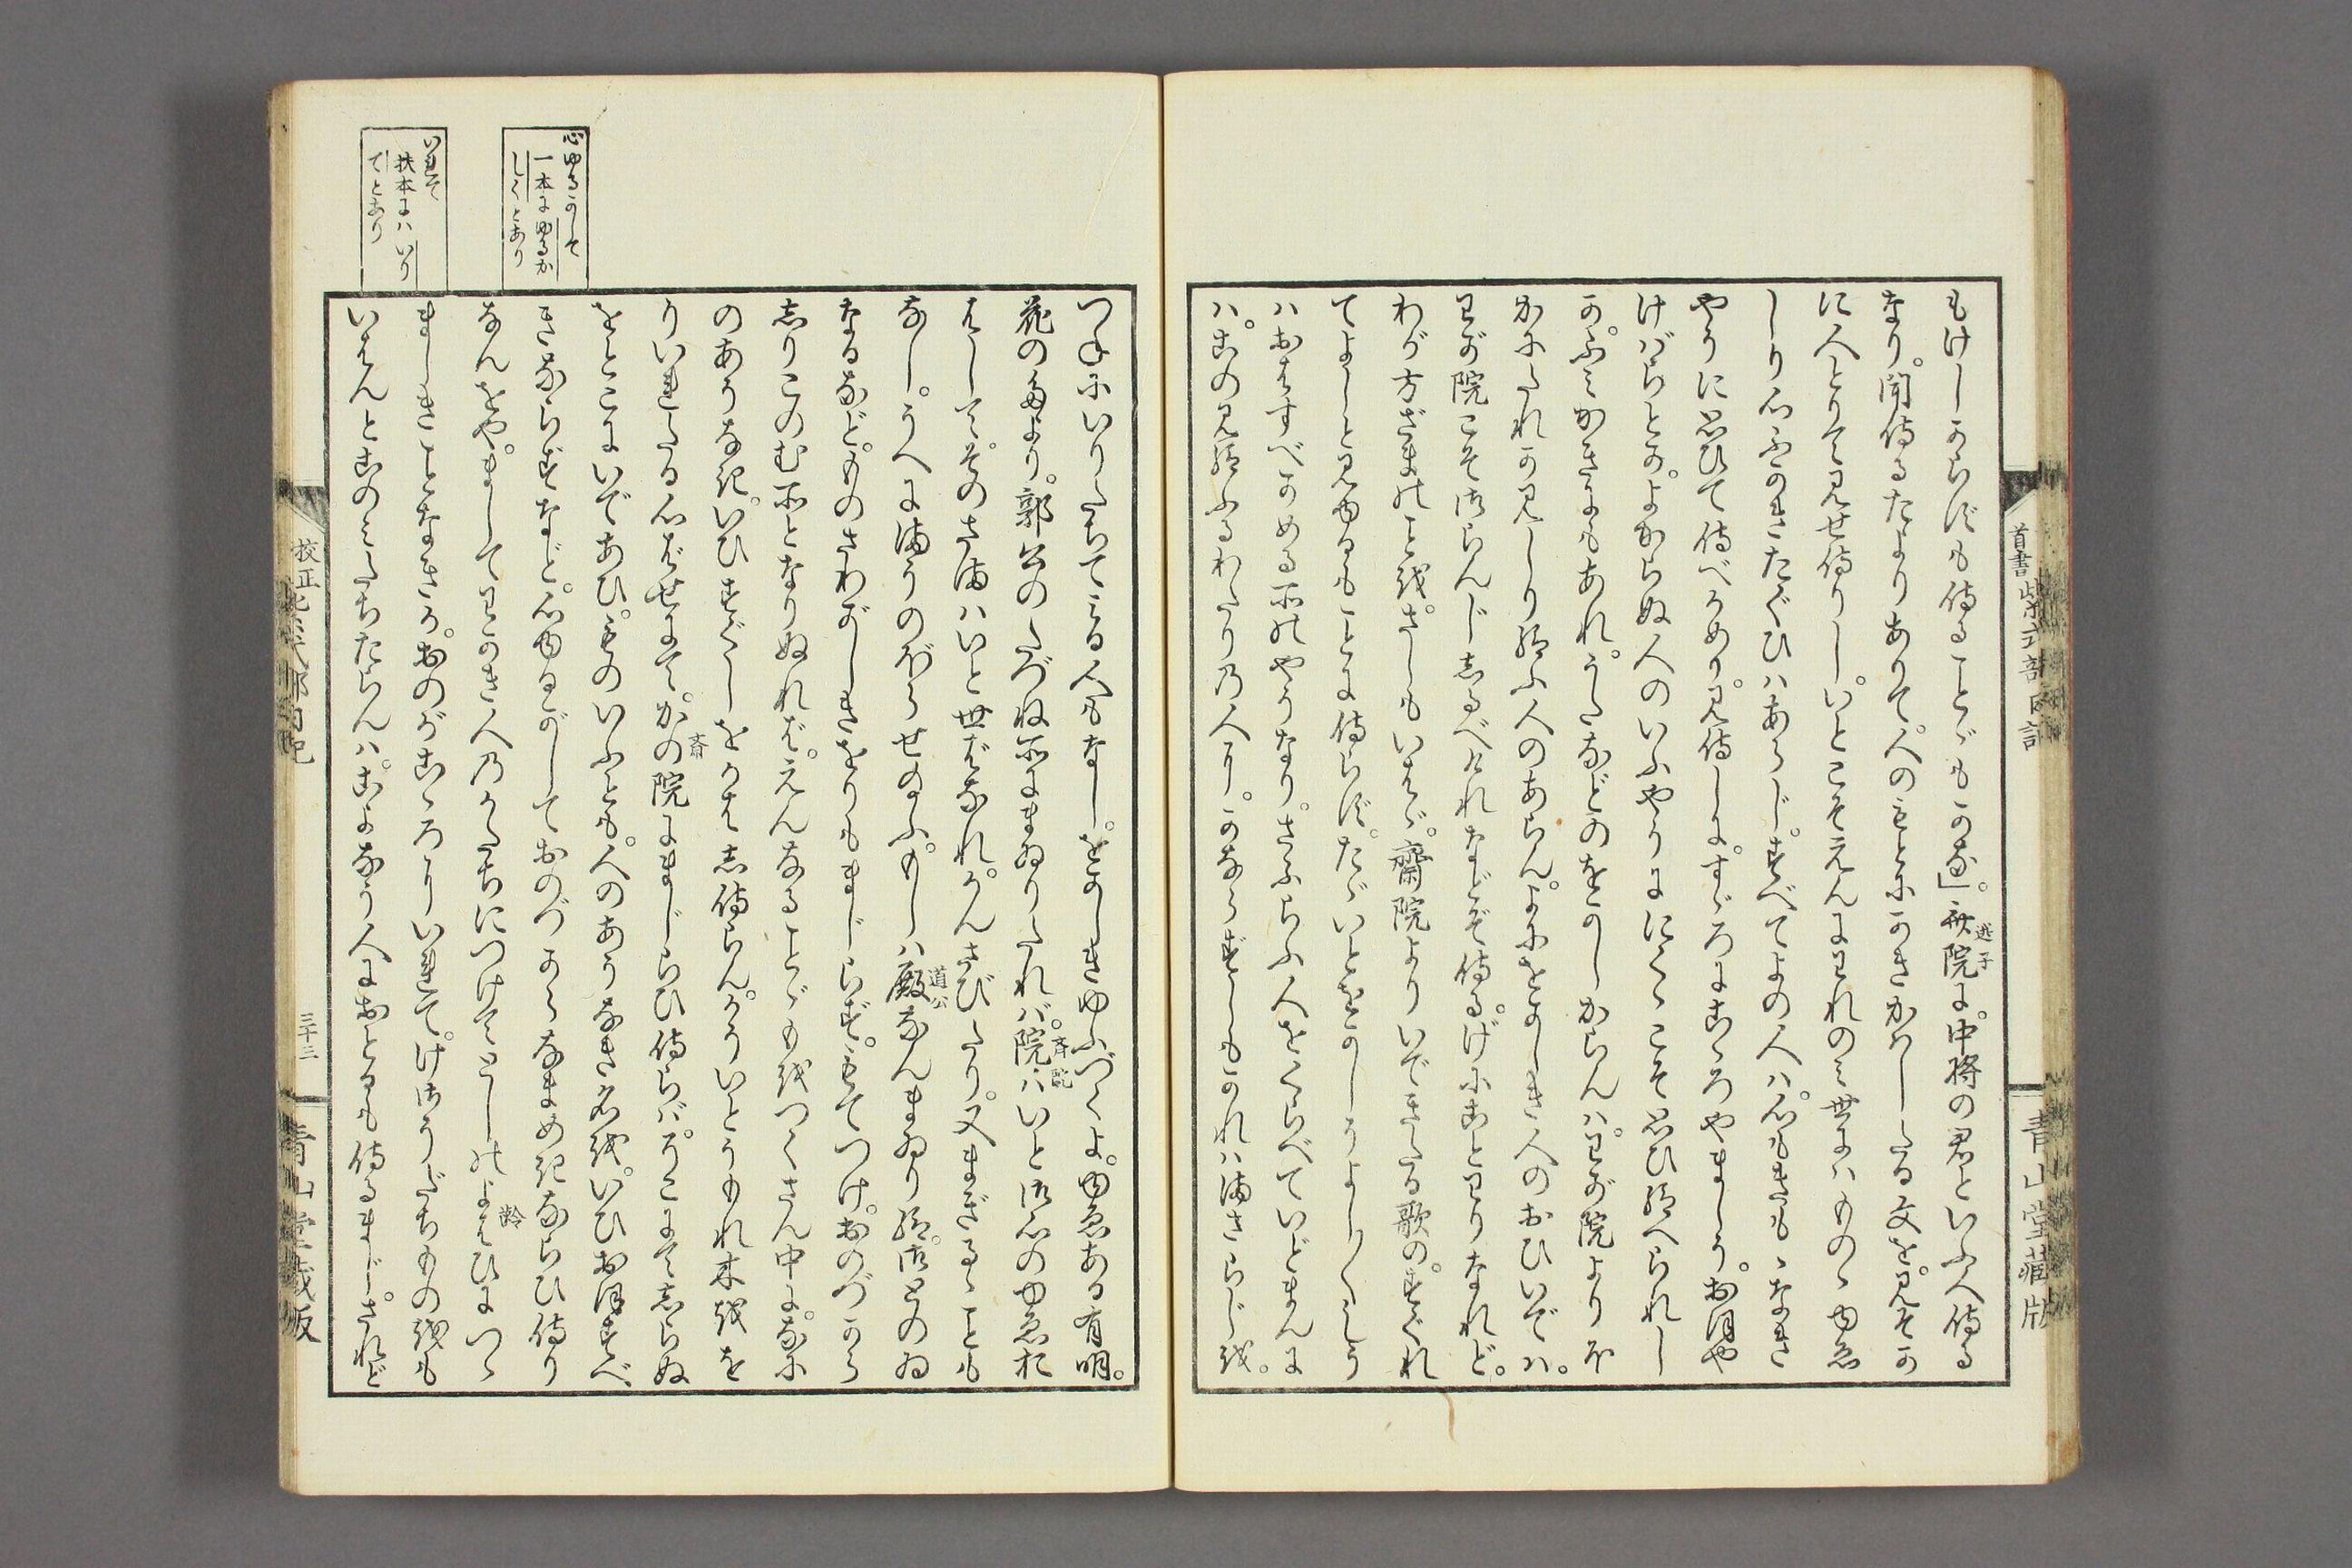 首書紫式部日記
青山堂蔵版
もけしからずも侍ることゞもかな」。斎院に。中将の君といふ人侍る
選子
なり。聞侍るたよりありて。人のもとにかきかはしたる文を。見そか
に人とりて見せ侍りし。いとこそえんにわれのみ世にハものゝゆゑ
しり心ふかきたぐひハあらじ。すべてよの人ハ。心もきもゝなき
やうに思ひて侍べかめり。見侍しに。すゞろにこゝろやましう。おほや
けばらとか。よからぬ人のいふやうににくゝこそ思ひ給へられし
か。ふみかきにもあれ。うたなどのをかしからんハ。わが院よりほ
かにたれか見しり給ふ人のあらん。よにをかしき人のおひいでハ。
わが院こそ御らんじしるべけれなどぞ侍る。げにことわりなれど。
わが方ざまのことを。さしもいはゞ。齋院よりいできたる歌の。すぐれ
てよしと見ゆるもことに侍らず。たゞいとをかしうよし〳〵しう
ハおはすべかめる所のやうなり。さふらふ人をくらべていどまんに
ハ。この見給ふるわたりの人に。かならずしもかれハまさらじを。
つねにいりたちて見る人もなし。をかしきゆふづくよ。ゆゑある有明。
花のたより。郭公のたづね所にまゐりたれバ。院ハいと御心のゆゑお
斉院
はして。そのさまハいと世ばなれ。かんさびたり。又まぎるゝことも
なし。うへにまうのぼらせ給ふ。もしハ殿なんまゐり給。御とのゐ
道公
なるなど。ものさわがしきをりもまじらず。もてつけ。おのづから
しりこのむ所となりぬれば。えんなることゞもをつくさん中に。なに
のあうなき。いひすぐしをかはし侍らん。かういとうもれ木をを
りいれたる心ばせにて。かの院にまじらひ侍らバ。そこにてしらぬ
斉
をとこにいであひ。ものいふとも。人のあうなき名を。いひおほすべ
きならずなど。心ゆるがしておのづからなまめきならひ侍り
なんをや。ましてわかき人のかたちにつけてとしのよはひにつゝ
齢
ましきことなきが。おのがこゝろにいれて。けさうだちものをも
いはんとこのみたちたらんハ。こよなう人におとるも侍るまじ。されど
心ゆるかして
一本にゆるか
しくとあり
いれて
扶本にハいり
てとあり
校正紫式部日記
三十三
青山堂蔵版